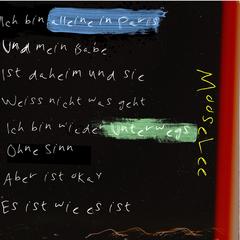 Ich bin alleine in Paris
Und mein Babe
Ist daheim und sie
Weiss nicht was geht
Ich bin wieder unterwegs
Ohne Sinn
Aber ist okay
Es ist wie es ist
MooseLee